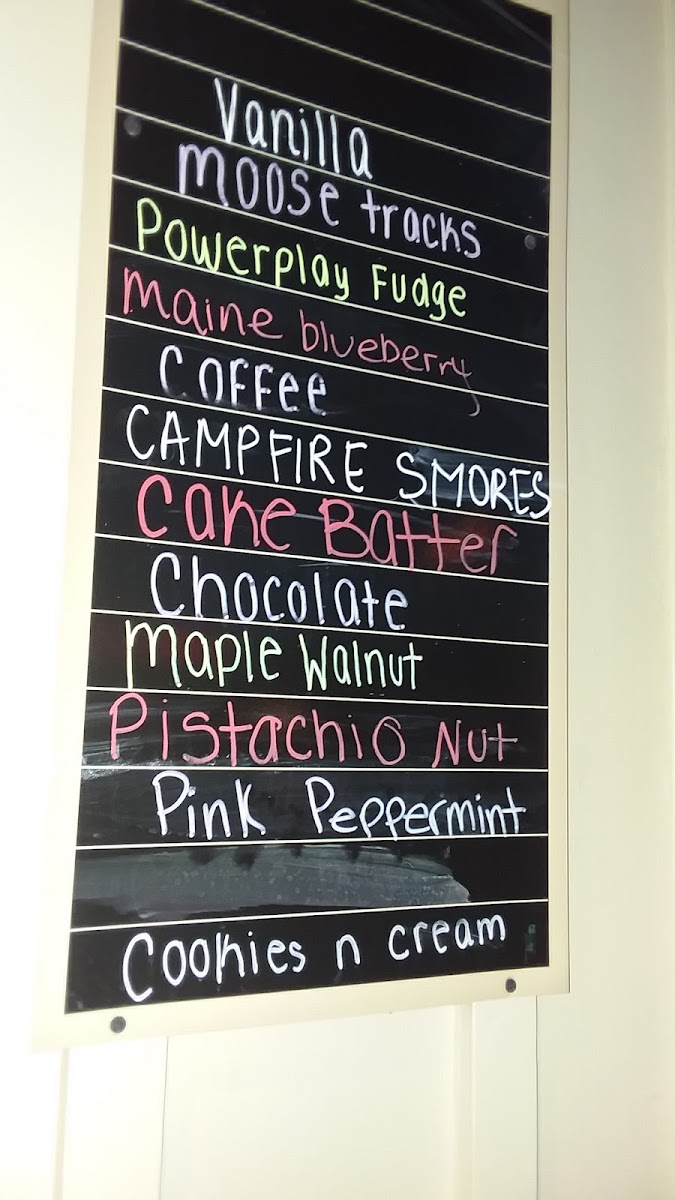 Vanilla
moose tracks
Powerplay Fudge
maine blueberry
Coffee
CAMPFIRE SMORES
Cake Batter
Chocolate
maple Walnut
Pistachio Nut
Pink Peppermint
Cookies n cream